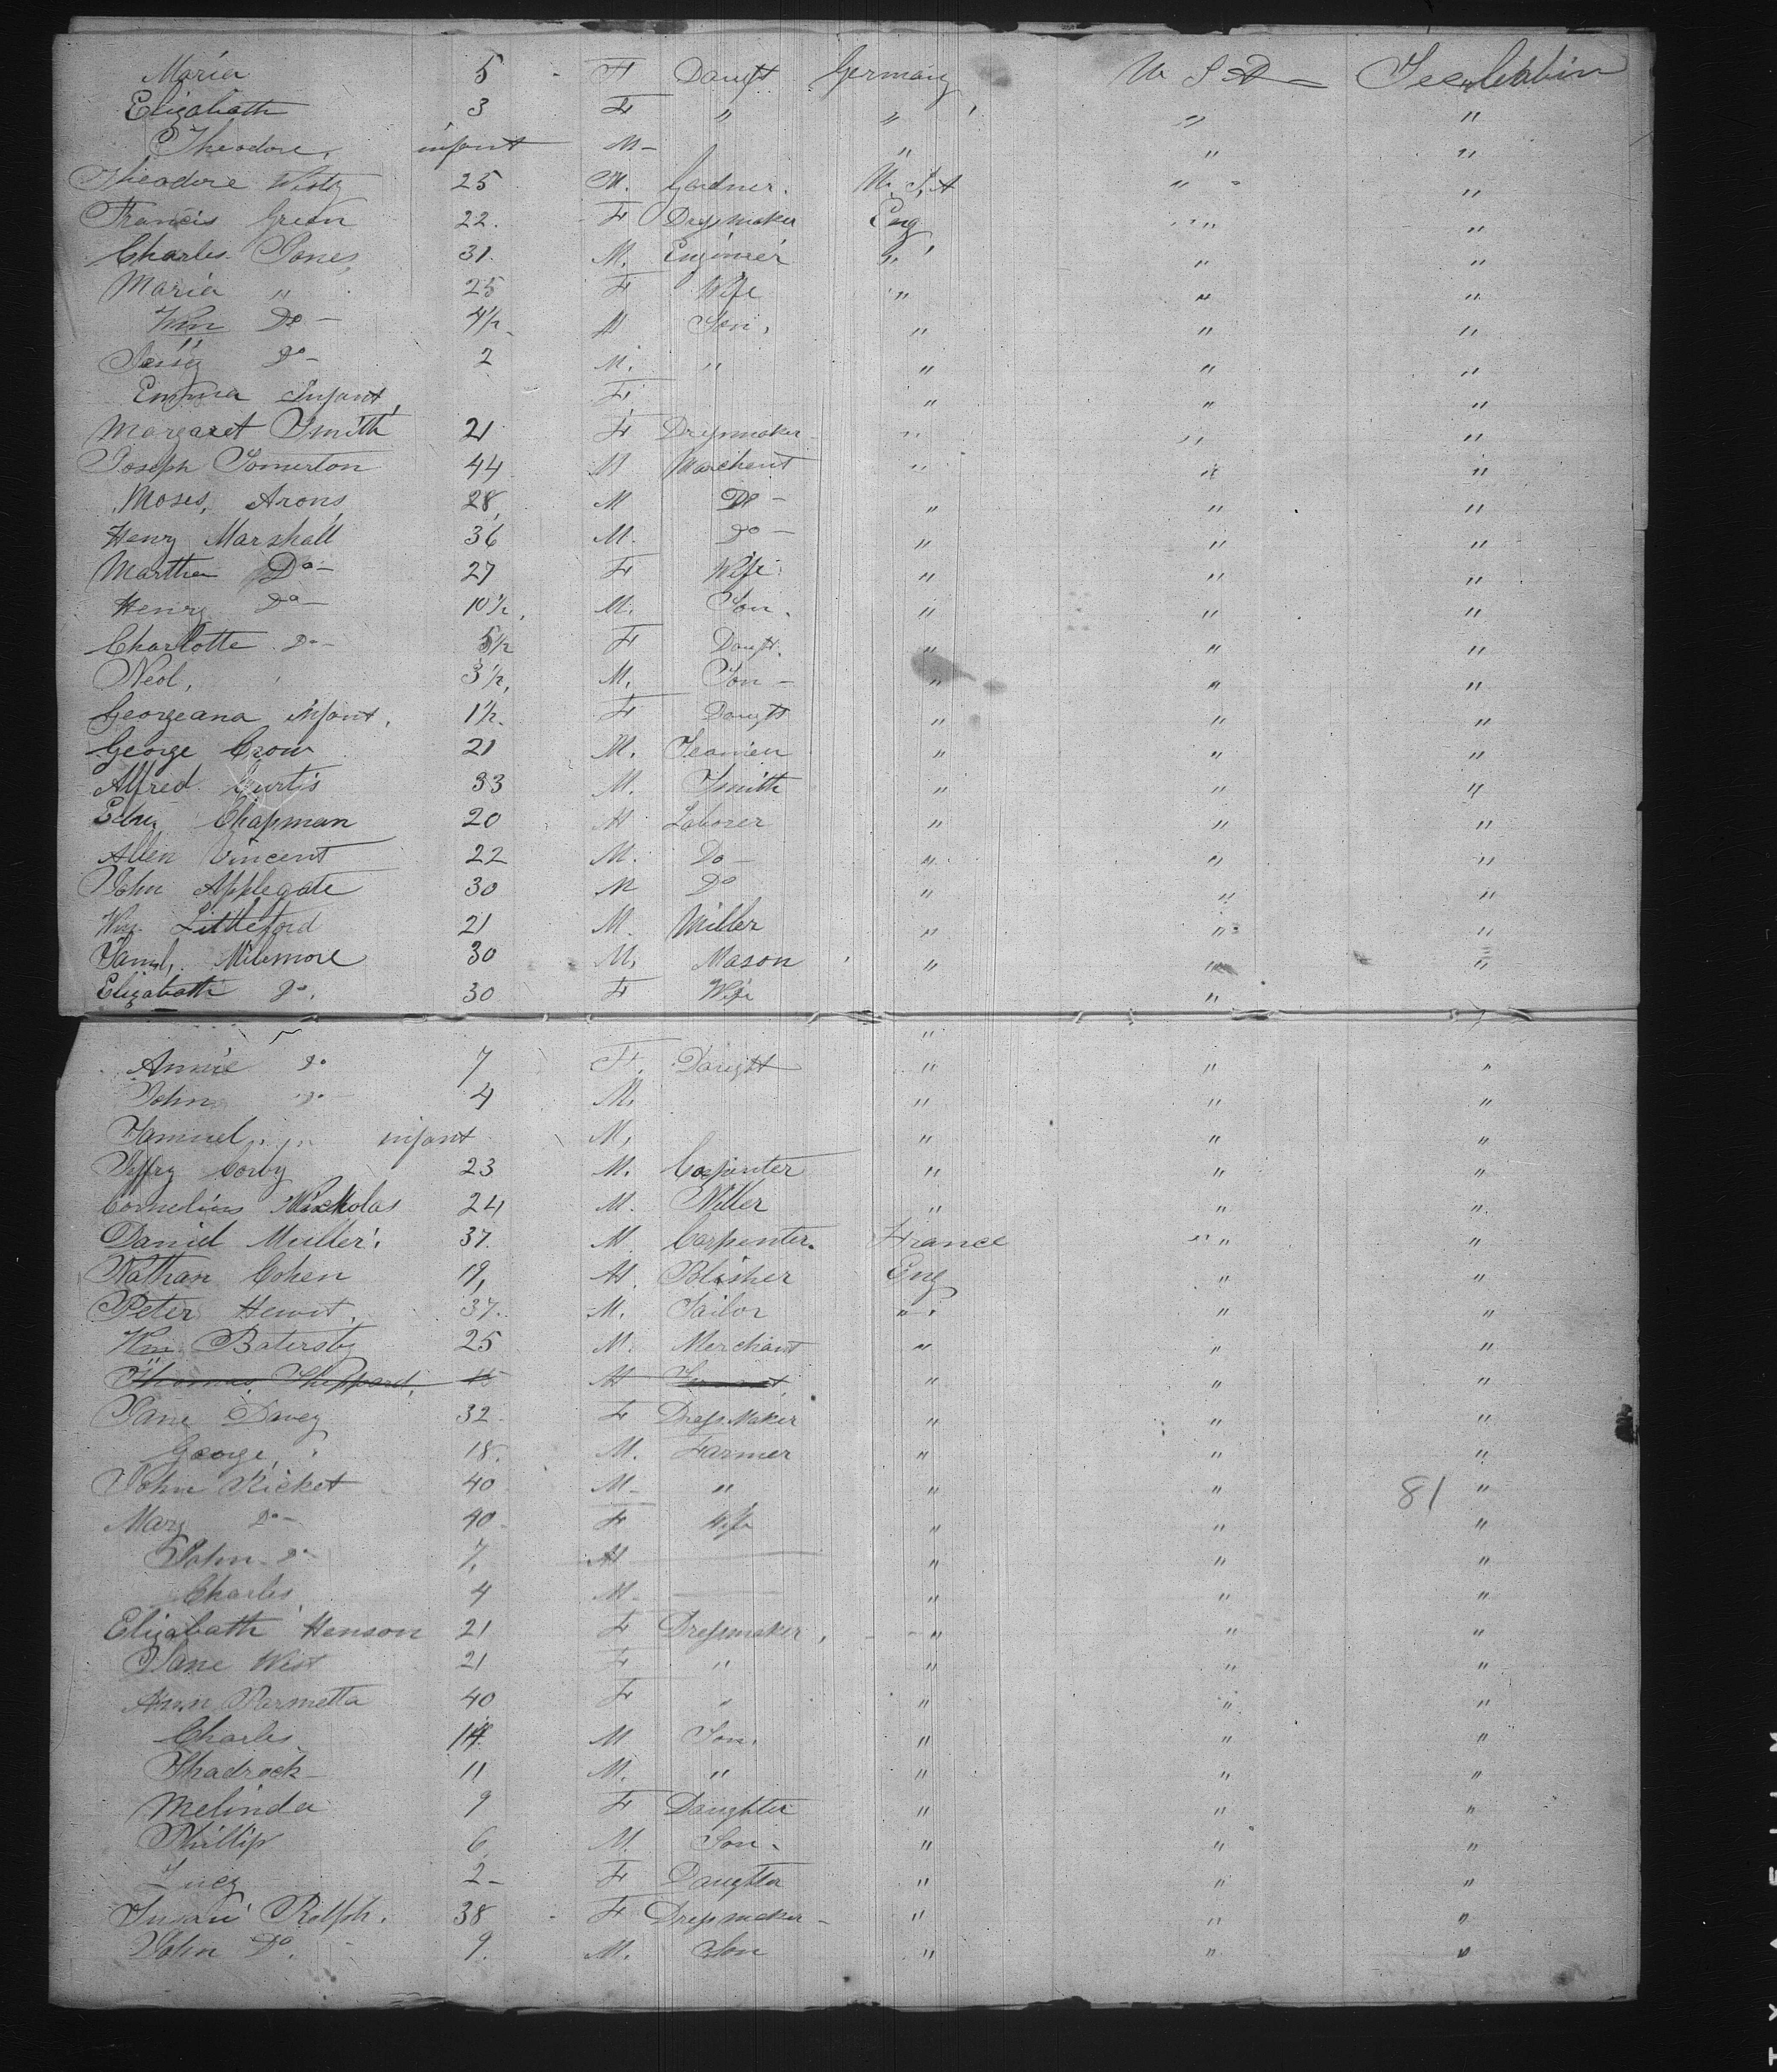 Maria 5 F Daugt Germany U S A Sec Cabin
Elizabath 3 F " " " "
Theodore, infant M " " "
Theodore 25 M. Gardner. U. S. A " "
Francis Green 22. F Dressmaker Eng " "
Charles Jones 31. M. Enginier " " "
Maria " 25 F Wife " " "
Wm Do 4½ M Son, " " "
Do 2 M. " " " "
Emma Infant, F " " "
Margaret Smith 21 F Dressmaker " " "
Joseph Somerton 44 M Marchent " " "
Moses, Arons, 28, M Do " " "
Henry Marshall 36 M. Do " " "
Martha Do 27 F Wife " " "
Henry Do 10½, M. Son. " " "
Charlotte Do 5½ F Daugt. " " "
Neol, 3½, M. Son " " "
Georgeana infant, 1½. F Daught " " "
George Crow 21 M. Seamen " " "
Alfred Curtis 33 M. Smith " " "
Chapman 20 M Laborer " " "
Allen Vincent 22 M. Do " " "
John Applegate 30 M Do " " "
Wm. Littleford 21 M. Miller " " "
Saml, Milemore 30 M, Mason " " "
Elizabath Do. 30 F Wife " "
Annie Do 7 F. Daught " " "
John Do 4 M. " " "
Samuel " infant M, " " "
Jeffry Corby 23 M. Carpinter " " "
Cornelius Nickolas 24 M. Miller " " "
Daniel Muller. 37. M Carpenter. France " "
Nathan Cohen 19, M. Polisher Eng " "
Peter Hewit, 37. M. Tailor " " "
Wm Batersby 25 M. Merchant " " "
Thomas Sheppard, 45 M Servant " " "
Jane Davey 32. F Dress Maker " " "
George, " 18. M. Farmer " " "
John Ricket 40 M " " " 81 "
Mary Do 40 F Wife " " "
John Do 7, M " " "
Charles, 4 M " " "
Elizabath Henson 21 F Dressmaker, " " "
Jane West 21 F " " " "
Ann Parmetta 40 F " " " "
Charles 14 M Son, " " "
Shadrock 11 M. " " " "
Melinda 9 F Daughter " " "
Phillip 6 M. Son. " " "
Lucy 2 F Daughter " " "
Susan Rolph. 38 F Dressmaker " " "
John Do. 9. M. Son " " "